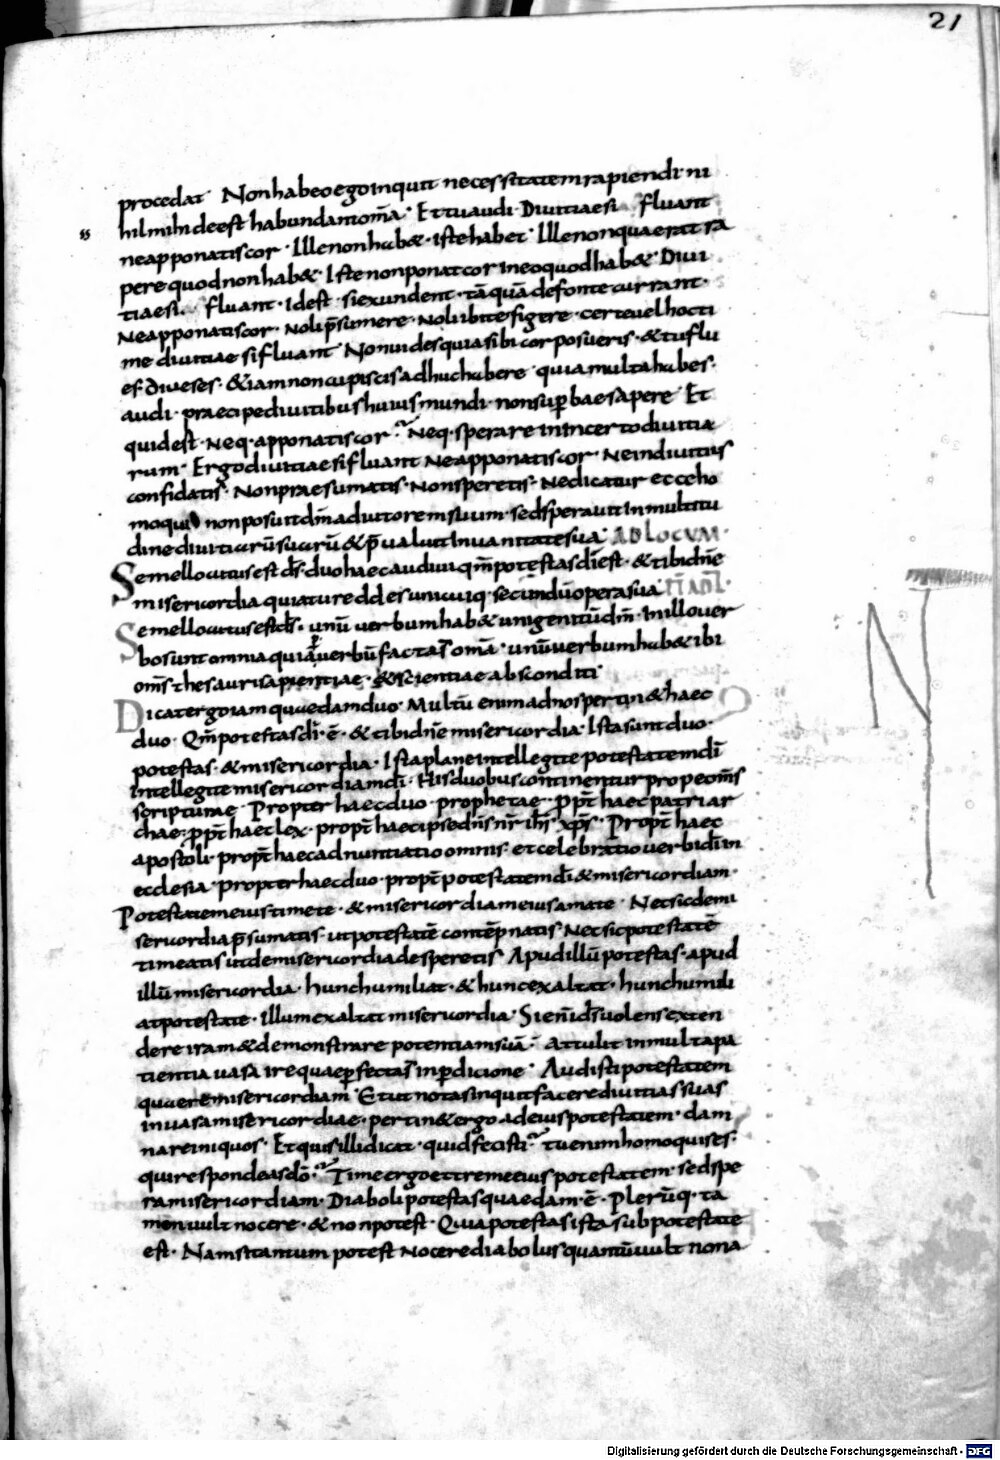 21
procedat Non habeo ego inquit necessitatem rapiendi ni
hil mihi deest habundant om̄a · Et tu audi · Divitiae si fluant
ne apponatis cor · Ille non hab& · iste habet · Ille non quaerat ra
pere quod non hab& · Iste non ponat cor in eo quod hab& · Divi
tiae si fluant · Id est · si exundent · tā quā de fonte currant ·
Ne apponatis cor · noli p̄sumere · noli ibi te figere · certe vel hoc ti
me divitiae si fluant Non vides quia si ibi cor posueris · & tu flu
es · dives es · & iam non cupiscis adhuc habere quia multa habes ·
audi · praecipe divitibus huius mundi · non sup̄bae sapere Et
quid est · neq · apponatis cor · Neq · sperare in incerto divitia
rum · Ergo divitiae si fluant ne apponatis cor · Ne in divitiis
confidatis · Non praesumatis · Non speretis · Ne dicatur ecce ho
mo qui non posuit dn̄m adiutorem suum · sed speravit in multitu
dine divitiarū suarū & p̄valuit in vanitate sua AD LOCUM ·
Semel locutus est ds̄ · duo haec audivi qm̄ potestas dī est · & tibi dn̄e
misericordia quia tu reddes unicuiq · secundū opera sua
Semel locutus est ds̄ · unū verbum hab& unigenitū dm̄ · In illo ver
bo sunt omnia quia per verbū facta s̄ om̄a · unū verbum hab& ibi
om̄s thesauri sapientiae · & scientiae absconditi
Dicat ergo iam quaedam duo · Multū enim ad nos pertin& haec
duo · Qm̄ potestas dī · ē · & tibi dn̄e misericordia · Ista sunt duo ·
potestas · & misericordia · Ista plane intellegite potestatem dī
intellegite misericordiam dī · His duobus continentur prope om̄s
scripturae Propter haec duo · prophetae · ppt̄ haec patriar
chae · ppt̄ haec lex · propt̄ haec ipse dn̄s nr̄ ih̄s xp̄s · Propt̄ haec
apostoli · propt̄ haec adnuntiatio omnis · et celebratio verbi dī in
ecclesia · Propter haec duo · propt̄ potestatem dī & misericordiam ·
Potestatem eius timete · & misericordiam eius amate Nec sic de mi
sericordia p̄sumatis · ut potestatē contēpnatis Nec sic potestatē
timeatis ut de misericordia desperetis Apud illū potestas · apud
illū misericordia · hunc humiliat · & hunc exaltat · hunc humili
at potestate · illum exaltat misericordia · Si en̄ ds̄ volens exten
dere iram & demonstrare potentiam suā · Attulit in multa pa
tientia vasa irae quae pfecta s̄ in pdicione · Audisti potestatem
quaere misericordiam Et ut notas inquit faceret divitias suas
in vasa misericordiae · pertin& ergo ad eius potestatem · dam
nare iniquos · Et quis illi dicat · quid fecisti · tu enim homo quis es ·
qui respondeas dō · Time ergo et treme eius potestatem · sed spe
ra misericordiam · Diaboli potestas quaedam · ē · Plerūq · ta
men vult nocere · & non potest · Quia potestas ista sub potestate
est · Nam si tantum potest nocere diabolus quantū vult non a
N
Digitalisierung gefördert durch die Deutsche Forschungsgemeinschaft - DFG